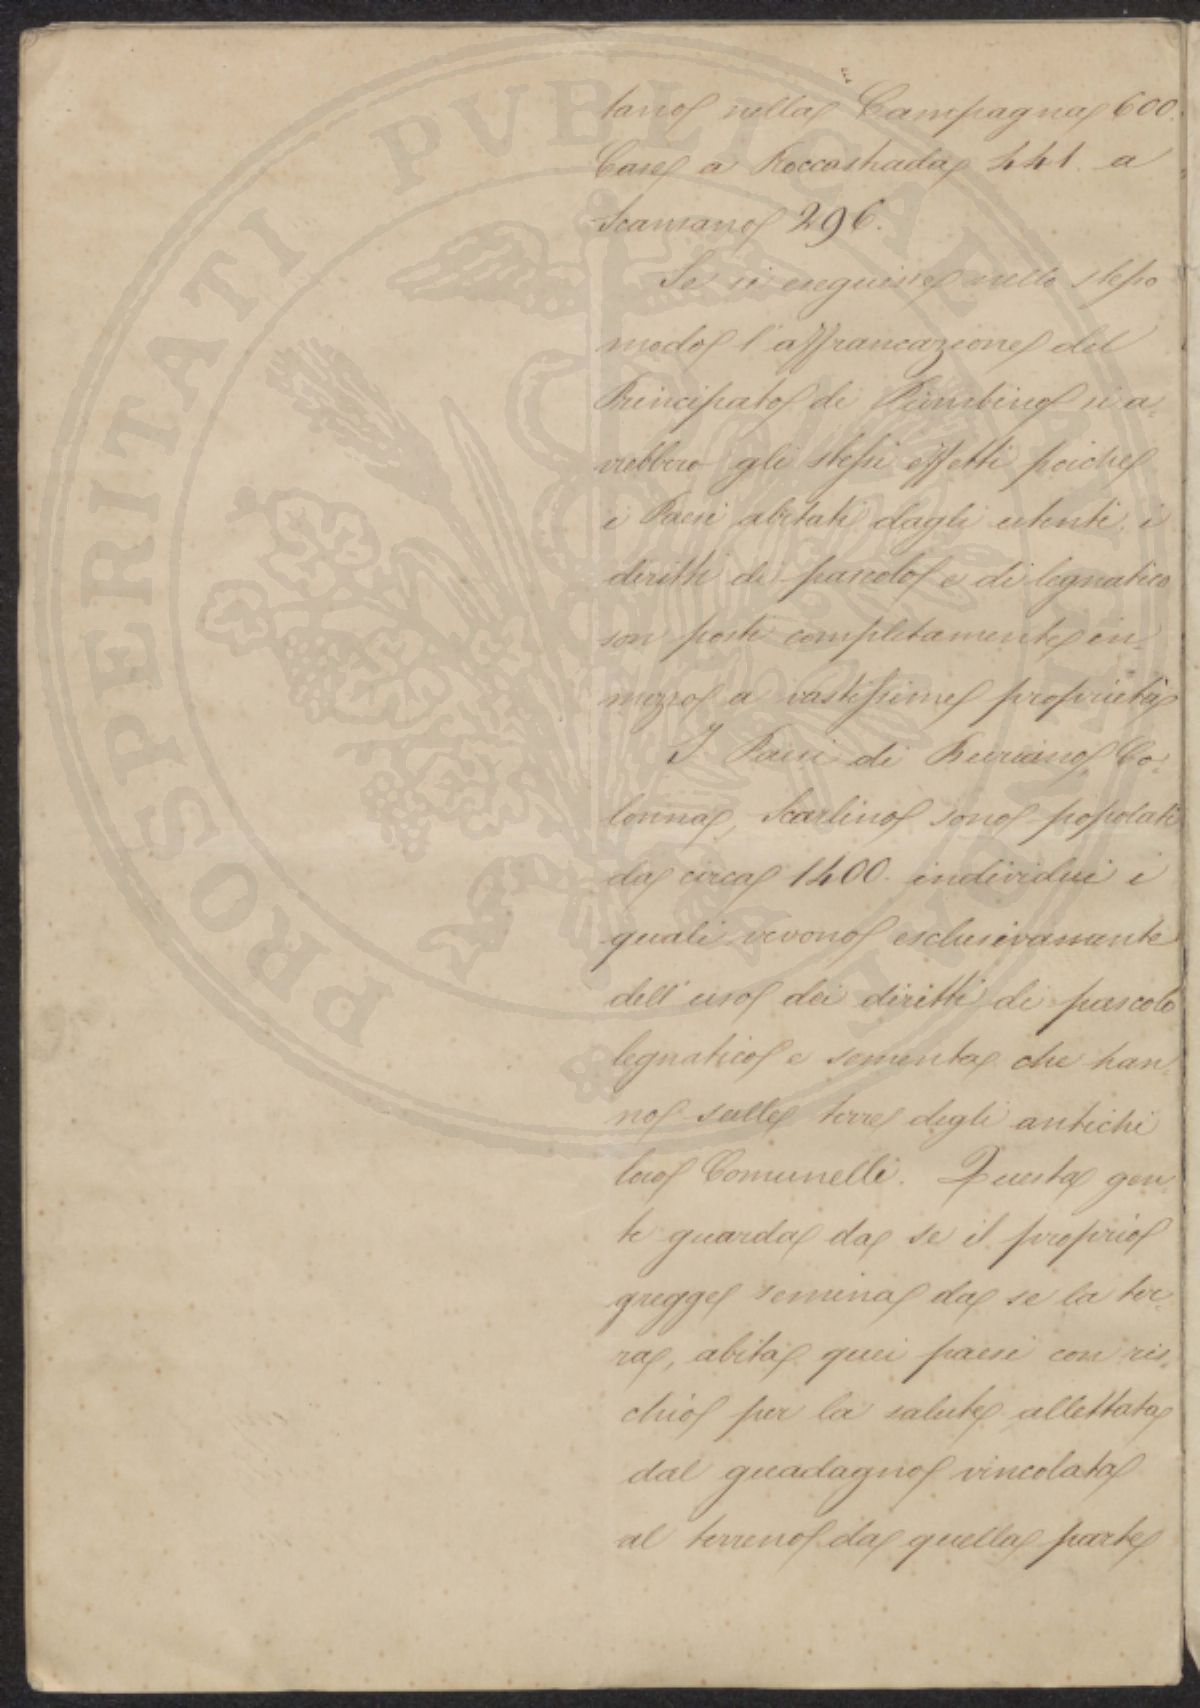 tano nella Campagna 600.
Case a Roccastrada 441. a
Scansano 296.
Se si eseguisse nello stesso
modo l'affrancazione del
Principato di Piombino si a=
vrebbero gli stessi effetti poiche
i Paesi abitati dagli utenti i
diritti di pascolo e di legnatico
son posti completamente in=
mezzo a vastissime proprietà
I Paesi di Buriano, Co=
lonna, Scarlino sono popolati
da circa 1400. individui i
quali vivono esclusivamente
dell'uso dei diritti di pascolo
legnatico e sementa che han=
no sulle terre degli antichi
loro Comunelli. Questa gen=
te guarda da se il proprio
gregge semina da se la ter=
ra, abita quei paesi con ris=
chio per la salute allettata
dal guadagno vincolata
al terreno da quella parte
PROSPERITATI PVBLICAE AVGENDAE